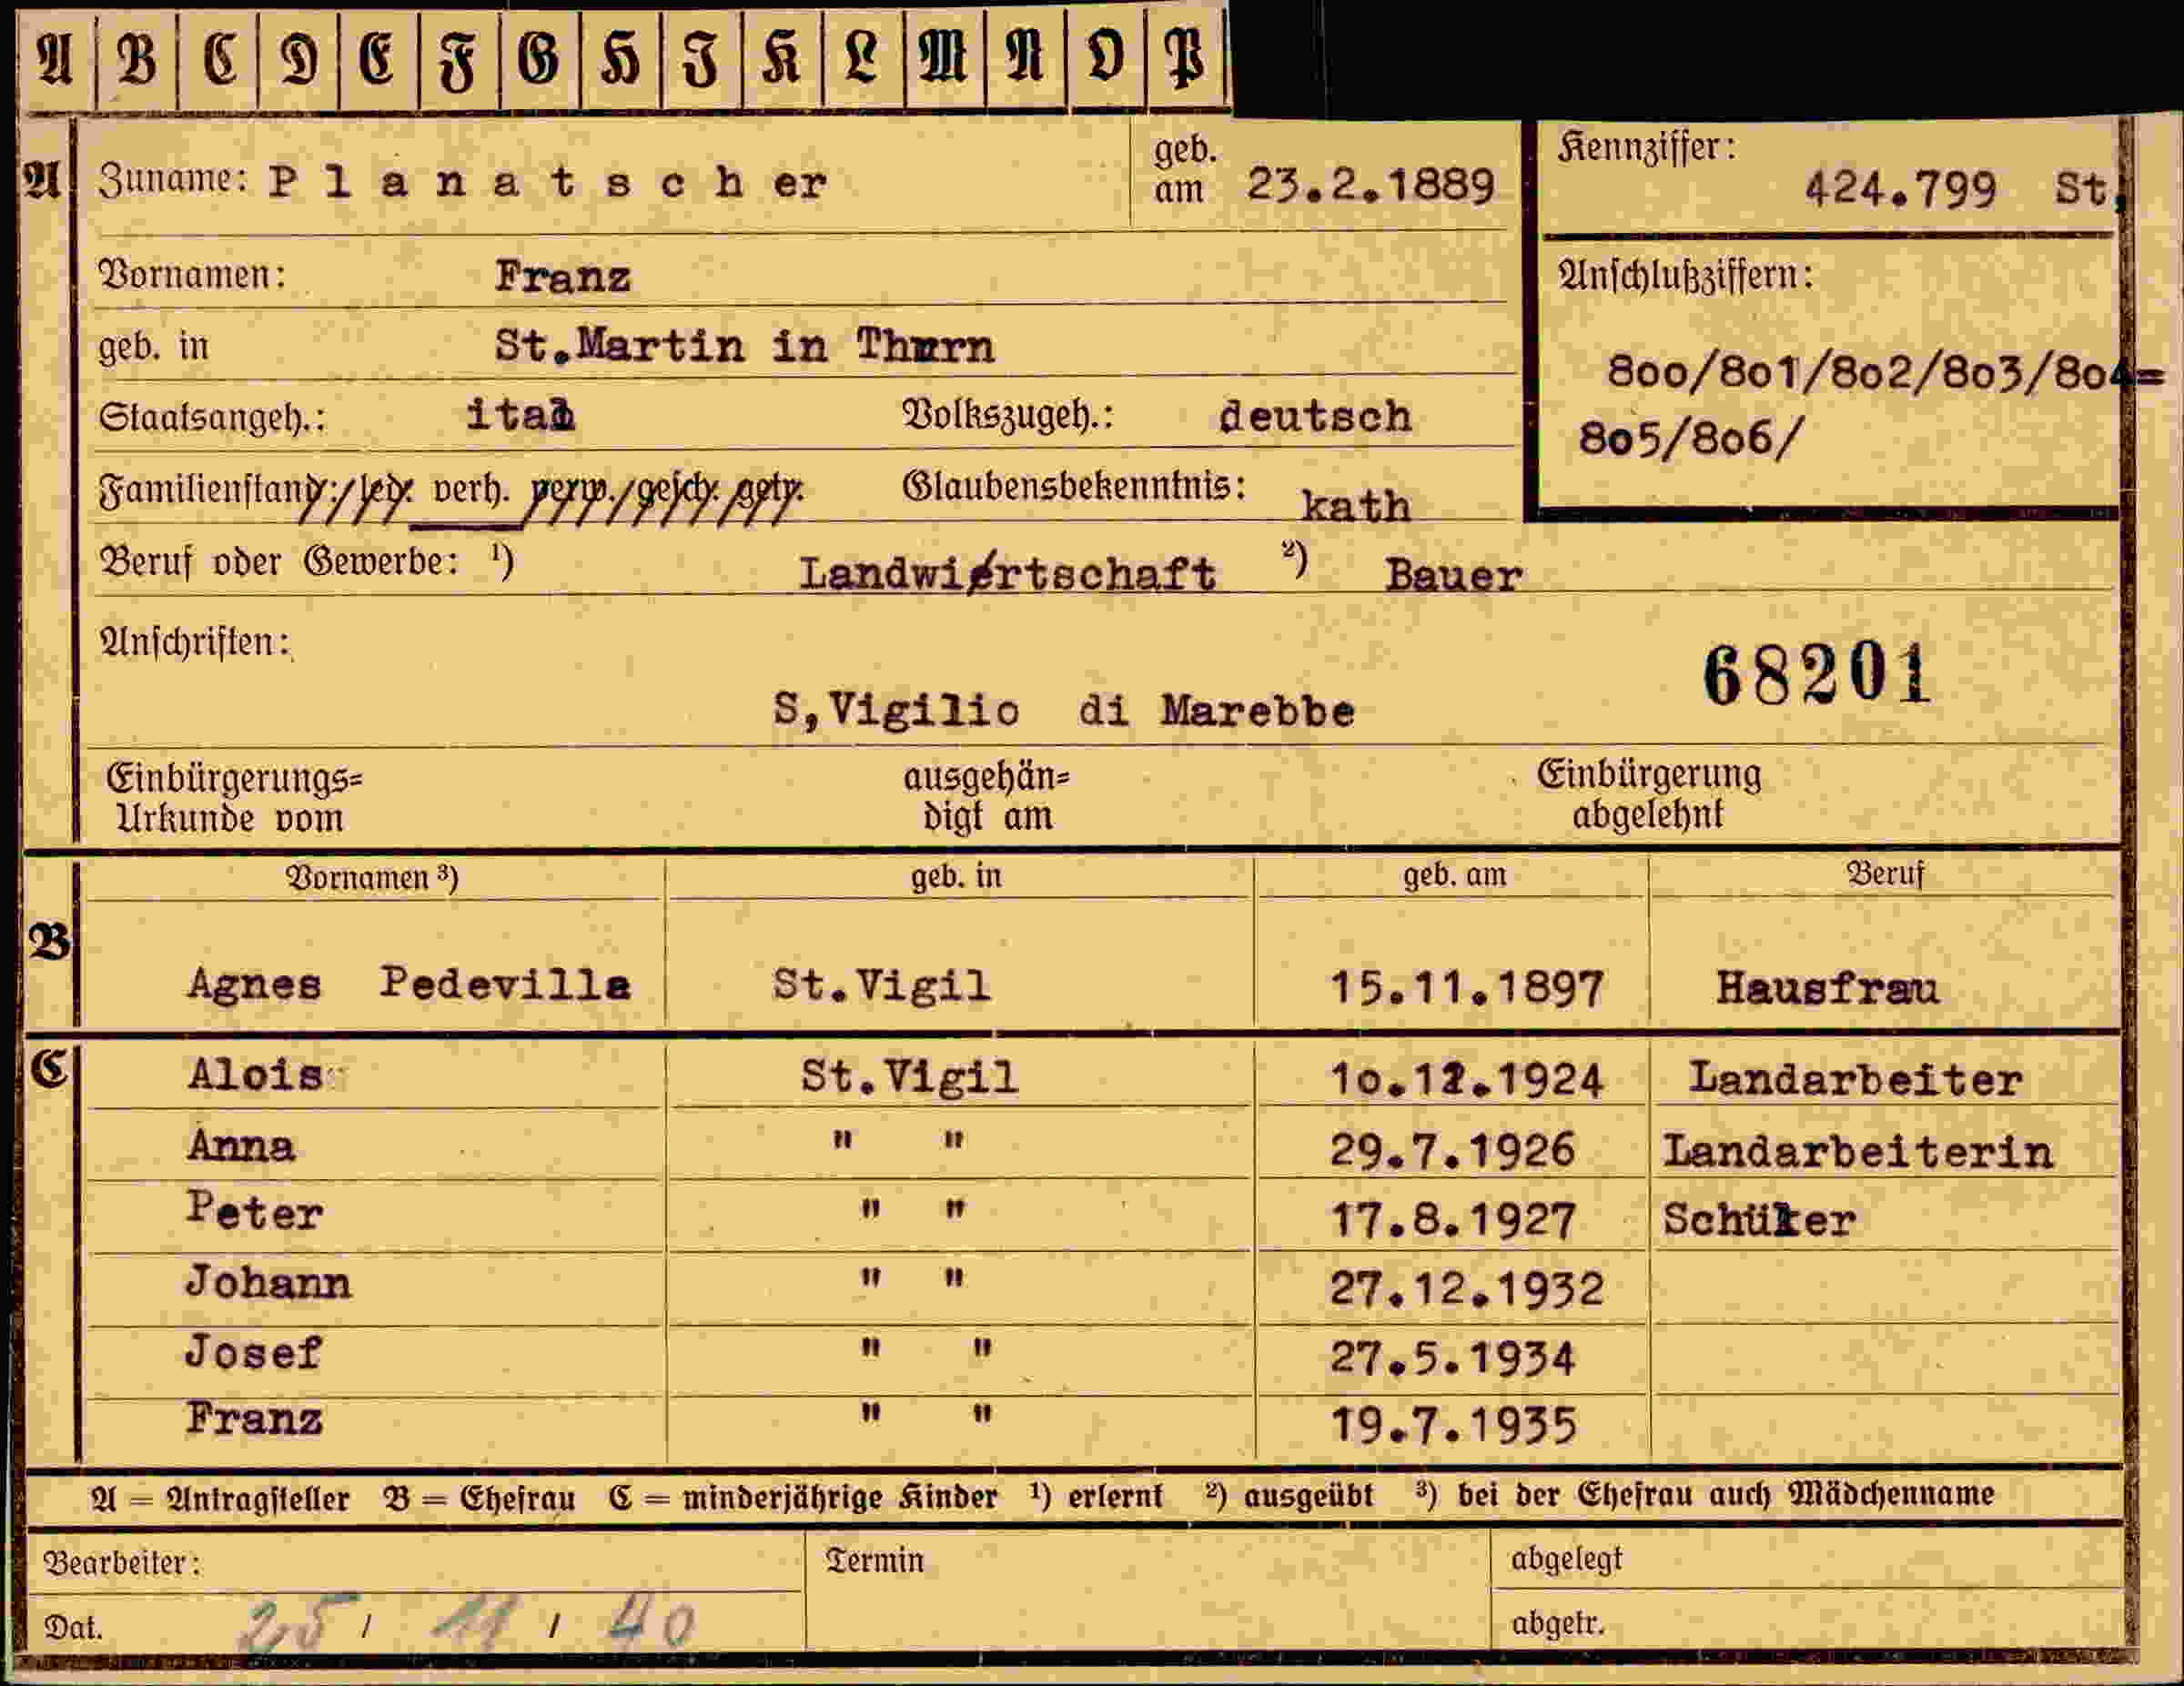 A B C D E F G H I K L M N O P
A Zuname: P l a n a t s c h er geb. am 23.2.1889
Kennziffer: 424.799 St.
Vornamen: Franz
Anschlußziffern:
geb. in St.Martin in Thurn
800/801/802/803/804=
Staatsangeh.: ital Volkszugeh.: deutsch
805/806/
Familienstand: led. verh. verw. gesch. getr. Glaubensbekenntnis: kath
Beruf oder Gewerbe: ¹) Landwirtschaft ²) Bauer
Anschriften:
68201
S,Vigilio di Marebbe
Einbürgerungs= ausgehän= Einbürgerung
Urkunde vom digt am abgelehnt
Vornamen ³) geb. in geb. am Beruf
B
Agnes Pedevilla St.Vigil 15.11.1897 Hausfrau
C Alois St.Vigil 10.12.1924 Landarbeiter
Anna " " 29.7.1926 Landarbeiterin
Peter " " 17.8.1927 Schüler
Johann " " 27.12.1932
Josef " " 27.5.1934
Franz " " 19.7.1935
A = Antragsteller B = Ehefrau C = minderjährige Kinder ¹) erlernt ²) ausgeübt ³) bei der Ehefrau auch Mädchenname
Bearbeiter: Termin abgelegt
Dat. 25 / 11 / 40 abgetr.